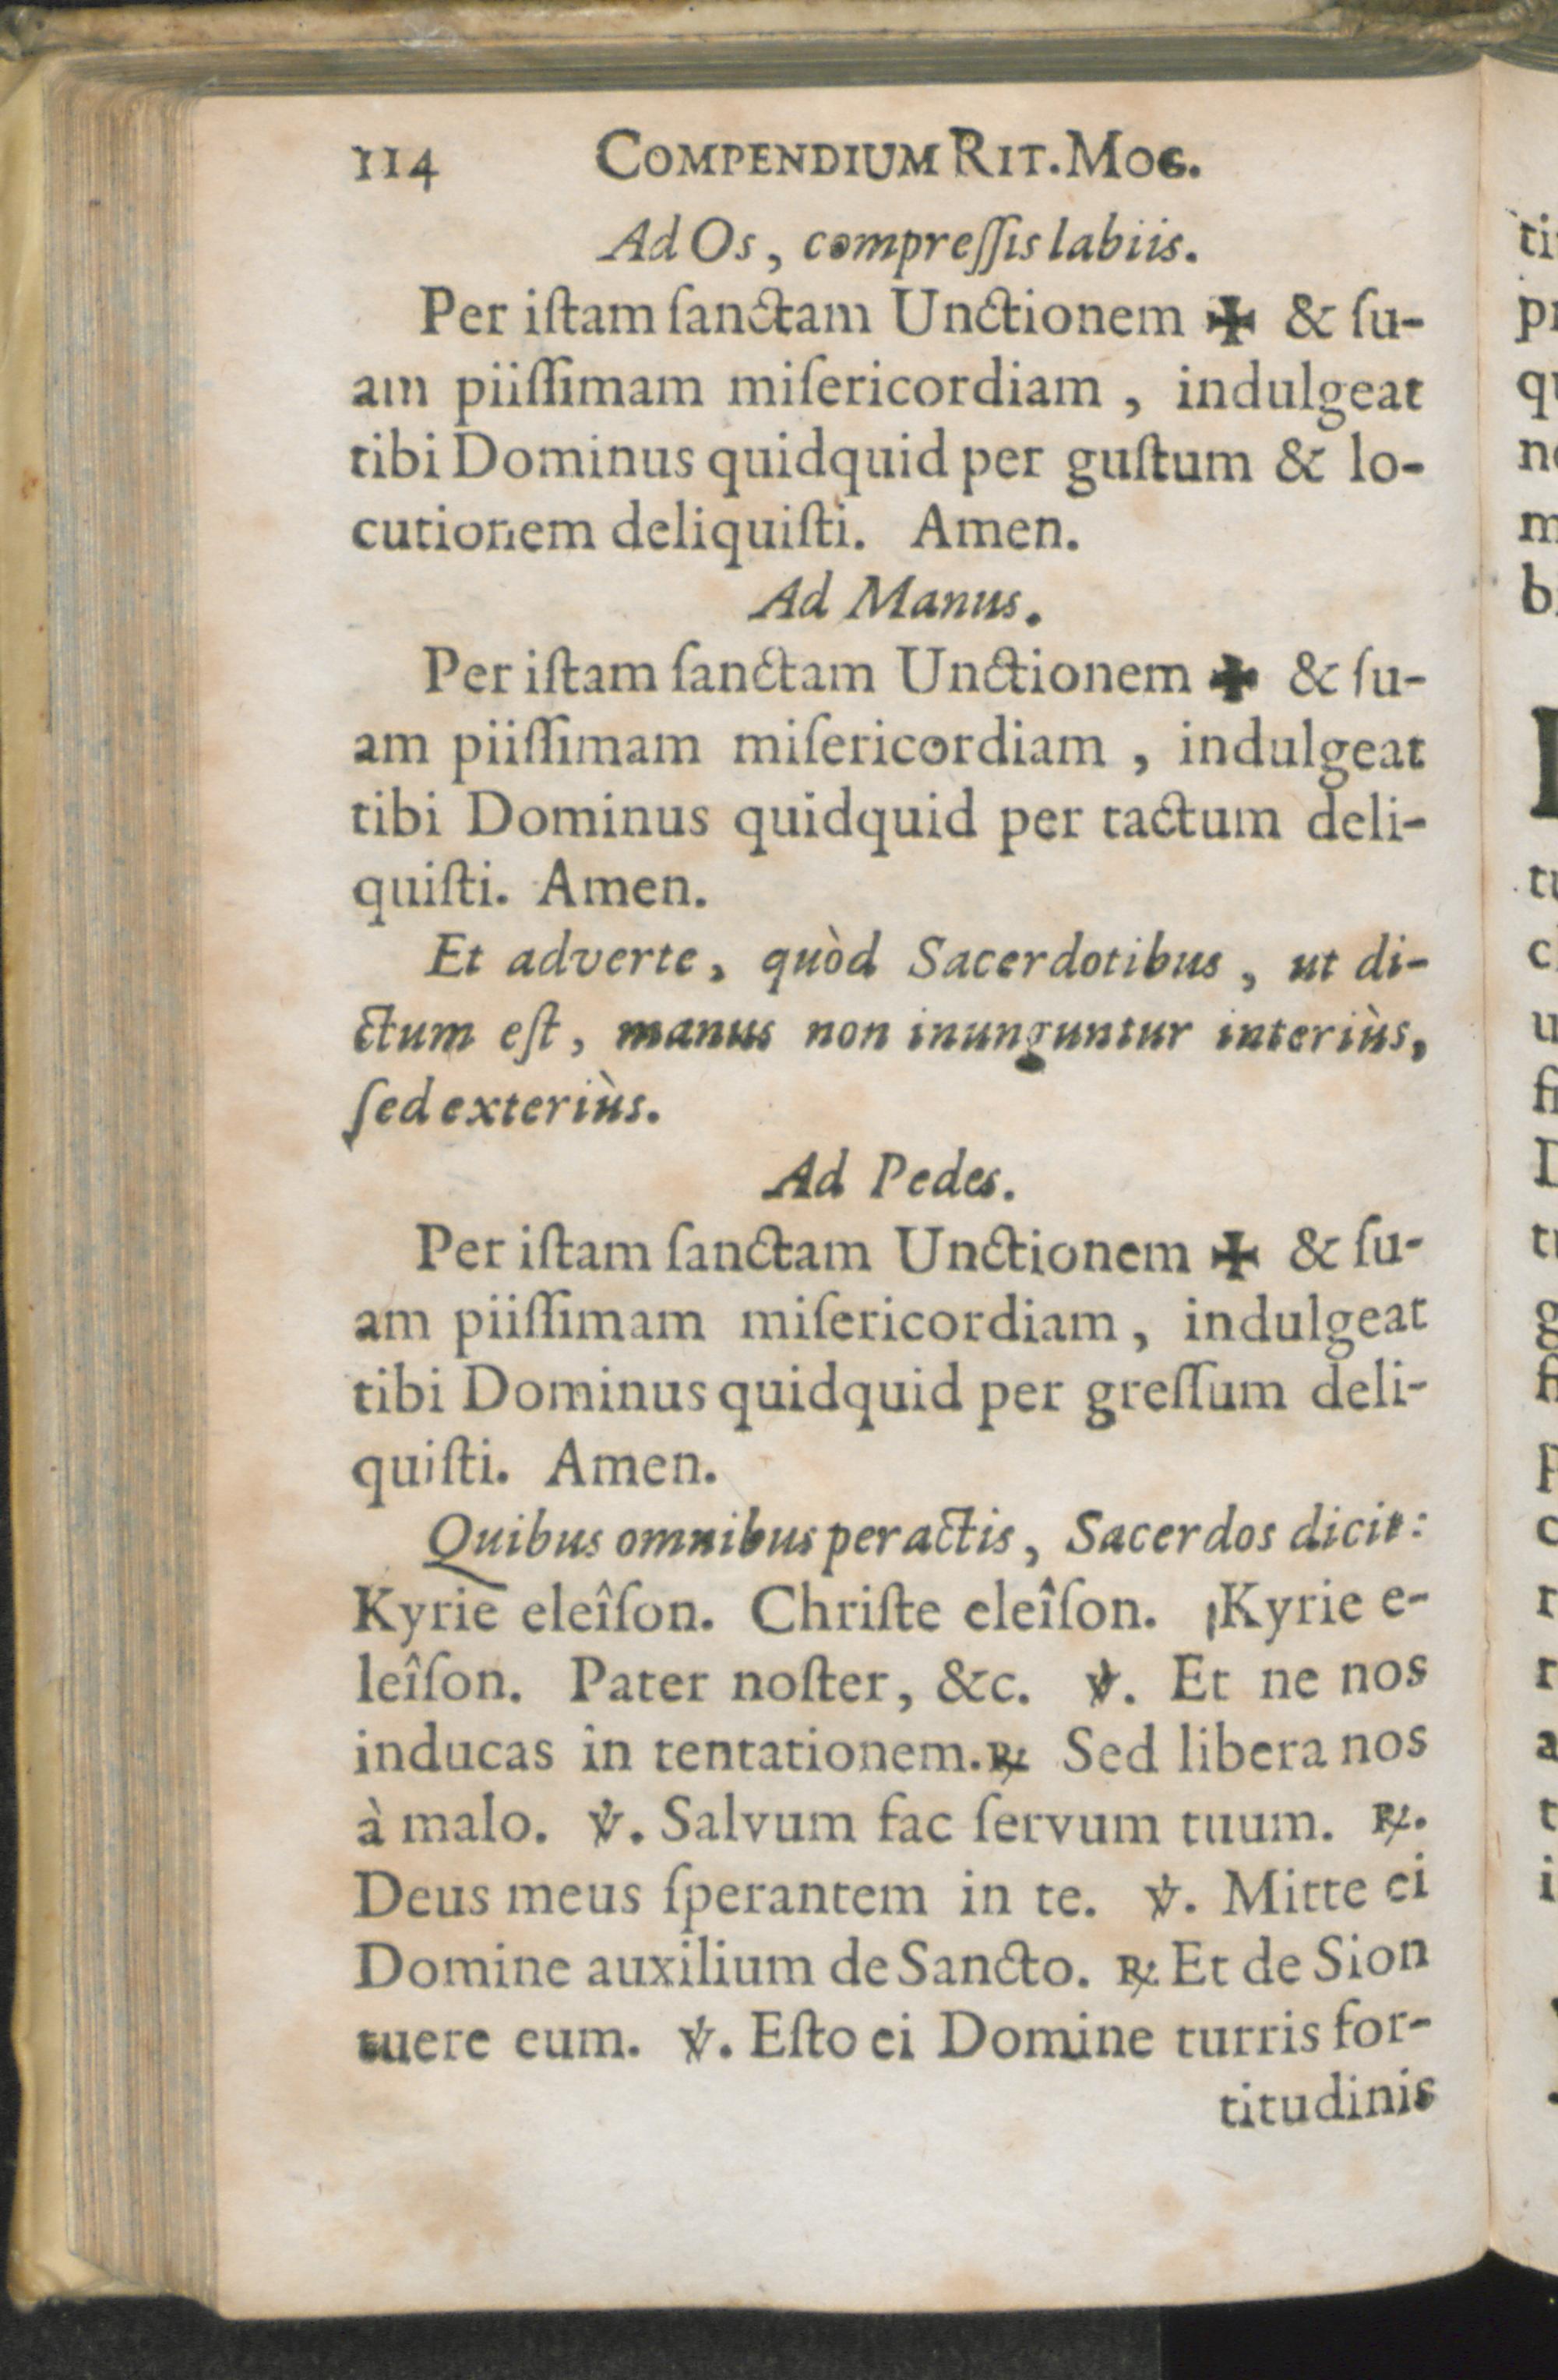 114 COMPENDIUM RIT. MOG.
Ad Os, compreſſis labiis.
Per iſtam ſanctam Unctionem ✠ & ſu-
am piiſſimam miſericordiam, indulgeat
tibi Dominus quidquid per guſtum & lo-
cutionem deliquiſti. Amen.
Ad Manus.
Per iſtam ſanctam Unctionem ✠ & ſu-
am piiſſimam miſericordiam, indulgeat
tibi Dominus quidquid per tactum deli-
quiſti. Amen.
Et adverte, quòd Sacerdotibus, ut di-
ctum eſt, manus non inunguntur interiùs,
ſed exteriùs.
Ad Pedes.
Per iſtam ſanctam Unctionem ✠ & ſu-
am piiſſimam miſericordiam, indulgeat
tibi Dominus quidquid per greſſum deli-
quiſti. Amen.
Quibus omnibus peractis, Sacerdos dicit:
Kyrie eleîſon. Chriſte eleîſon. Kyrie e-
leîſon. Pater noſter, &c. ℣. Et ne nos
inducas in tentationem. ℟ Sed libera nos
à malo. ℣. Salvum fac ſervum tuum. ℟.
Deus meus ſperantem in te. ℣. Mitte ei
Domine auxilium de Sancto. ℟ Et de Sion
tuere eum. ℣. Eſto ei Domine turris for-
titudinis